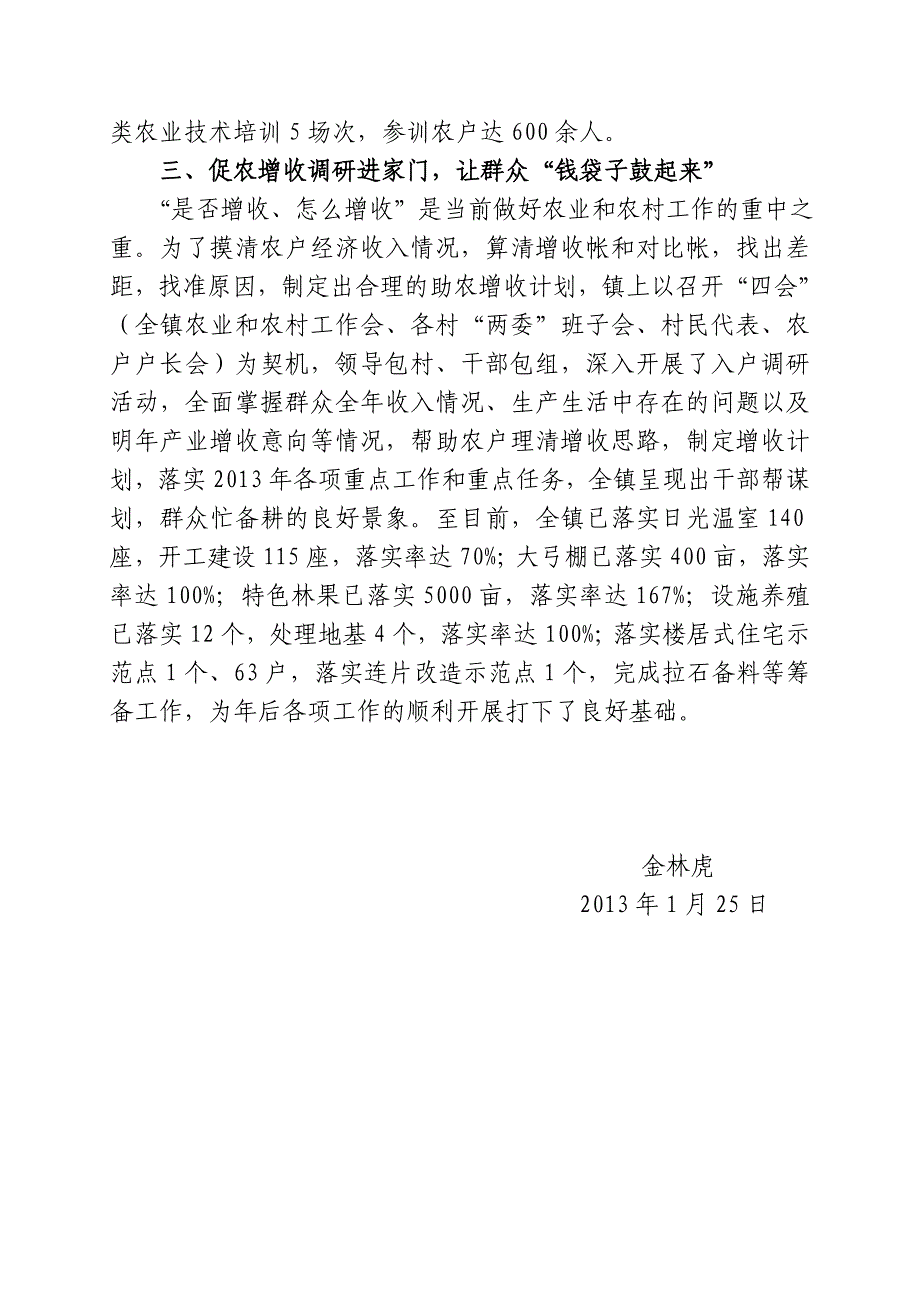 类农业技术培训5场次，参训农户达600余人。
三、促农增收调研进家门，让群众“钱袋子鼓起来”
“是否增收、怎么增收”是当前做好农业和农村工作的重中之
重。为了摸清农户经济收入情况，算清增收帐和对比帐，找出差
距，找准原因，制定出合理的助农增收计划，镇上以召开“四会”
（全镇农业和农村工作会、各村“两委”班子会、村民代表、农
户户长会）为契机，领导包村、干部包组，深入开展了入户调研
活动，全面掌握群众全年收入情况、生产生活中存在的问题以及
明年产业增收意向等情况，帮助农户理清增收思路，制定增收计
划，落实2013年各项重点工作和重点任务，全镇呈现出干部帮谋
划，群众忙备耕的良好景象。至目前，全镇已落实日光温室140
座，开工建设115座，落实率达70%；大弓棚已落实400亩，落实
率达100%；特色林果已落实5000亩，落实率达167%；设施养殖
已落实12个，处理地基4个，落实率达100%；落实楼居式住宅示
范点1个、63户，落实连片改造示范点1个，完成拉石备料等筹
备工作，为年后各项工作的顺利开展打下了良好基础。
金林虎
2013年1月25日